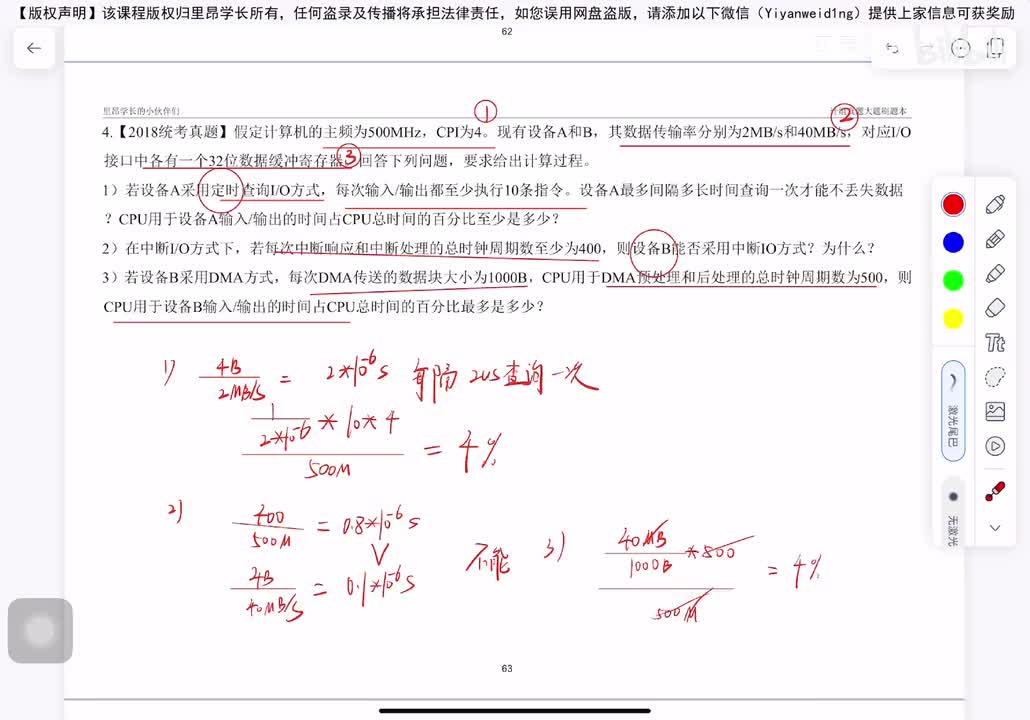 【版权声明】该课程版权归里昂学长所有，任何盗录及传播将承担法律责任，如您误用网盘盗版，请添加以下微信（Yiyanweid1ng）提供上家信息可获奖励
62
bilibili
里昂学长的小伙伴们
真题大题刷题本
① ②
4.【2018统考真题】假定计算机的主频为500MHz，CPI为4。现有设备A和B，其数据传输率分别为2MB/s和40MB/s，对应I/O
接口中各有一个32位数据缓冲寄存器。③回答下列问题，要求给出计算过程。
1）若设备A采用定时查询I/O方式，每次输入/输出都至少执行10条指令。设备A最多间隔多长时间查询一次才能不丢失数据
？CPU用于设备A输入/输出的时间占CPU总时间的百分比至少是多少？
2）在中断I/O方式下，若每次中断响应和中断处理的总时钟周期数至少为400，则设备B能否采用中断IO方式？为什么？
3）若设备B采用DMA方式，每次DMA传送的数据块大小为1000B，CPU用于DMA预处理和后处理的总时钟周期数为500，则
CPU用于设备B输入/输出的时间占CPU总时间的百分比最多是多少？
1) 4B / 2MB/s = 2*10^-6 s 每隔 2us查询一次
1 / 2*10^-6 * 10*4 / 500M = 4%
2) 400 / 500M = 0.8*10^-6 s
∨
4B / 40MB/s = 0.1*10^-6 s
不能
3) 40MB / 1000B * 500 / 500M = 4%
Tt
激光尾巴
无激光
63